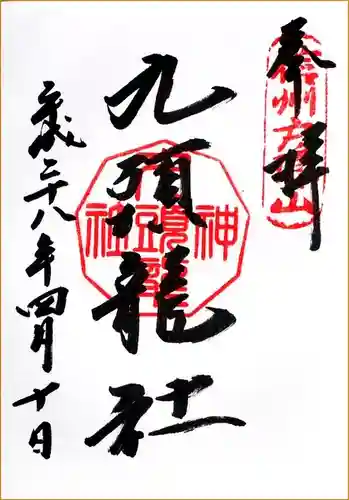 奉拝
信州戸隠山
九頭龍社
九頭龍神社
平成二十八年四月十日